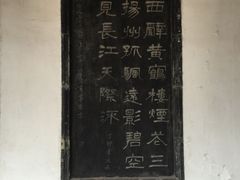 西辭黃鶴樓煙花三
揚州孤帆遠影碧空
見長江天際流